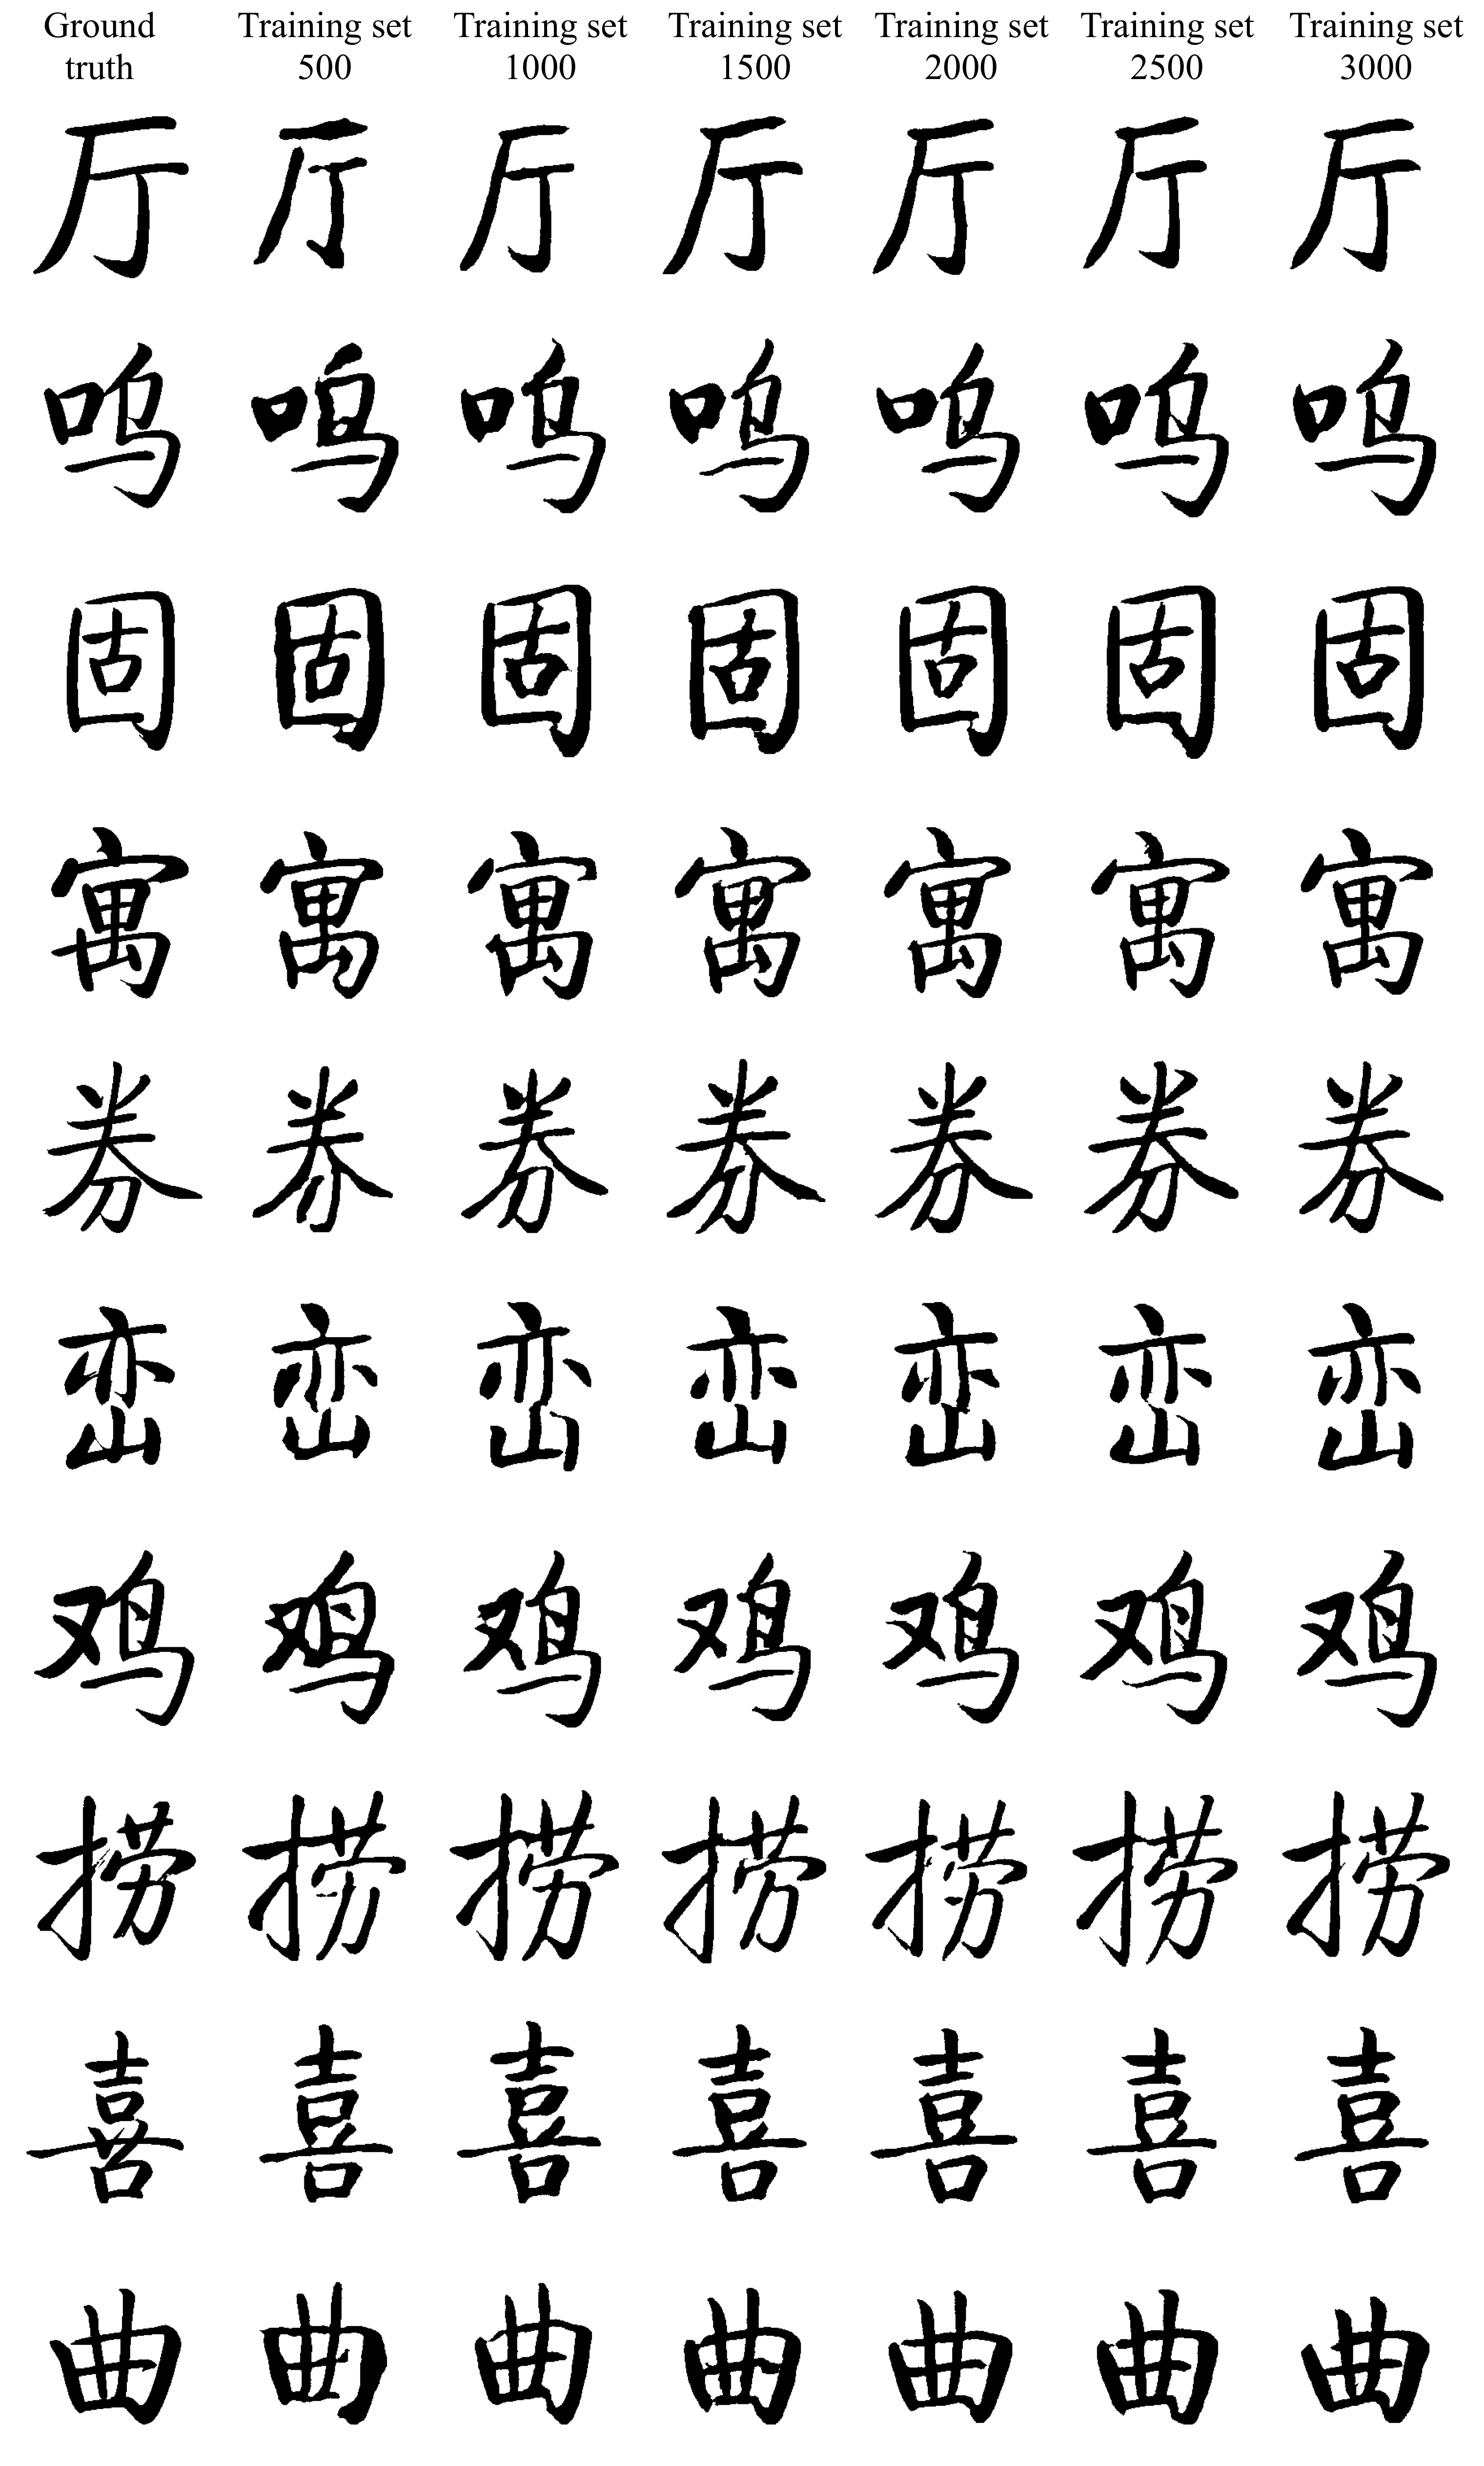 Ground truth Training set 500 Training set 1000 Training set 1500 Training set 2000 Training set 2500 Training set 3000
厅 厅 厅 厅 厅 厅 厅
呜 呜 呜 呜 呜 呜 呜
固 固 固 固 固 固 固
寓 寓 寓 寓 寓 寓 寓
券 券 券 券 券 券 券
峦 峦 峦 峦 峦 峦 峦
鸡 鸡 鸡 鸡 鸡 鸡 鸡
捞 捞 捞 捞 捞 捞 捞
喜 喜 喜 喜 喜 喜 喜
曲 曲 曲 曲 曲 曲 曲